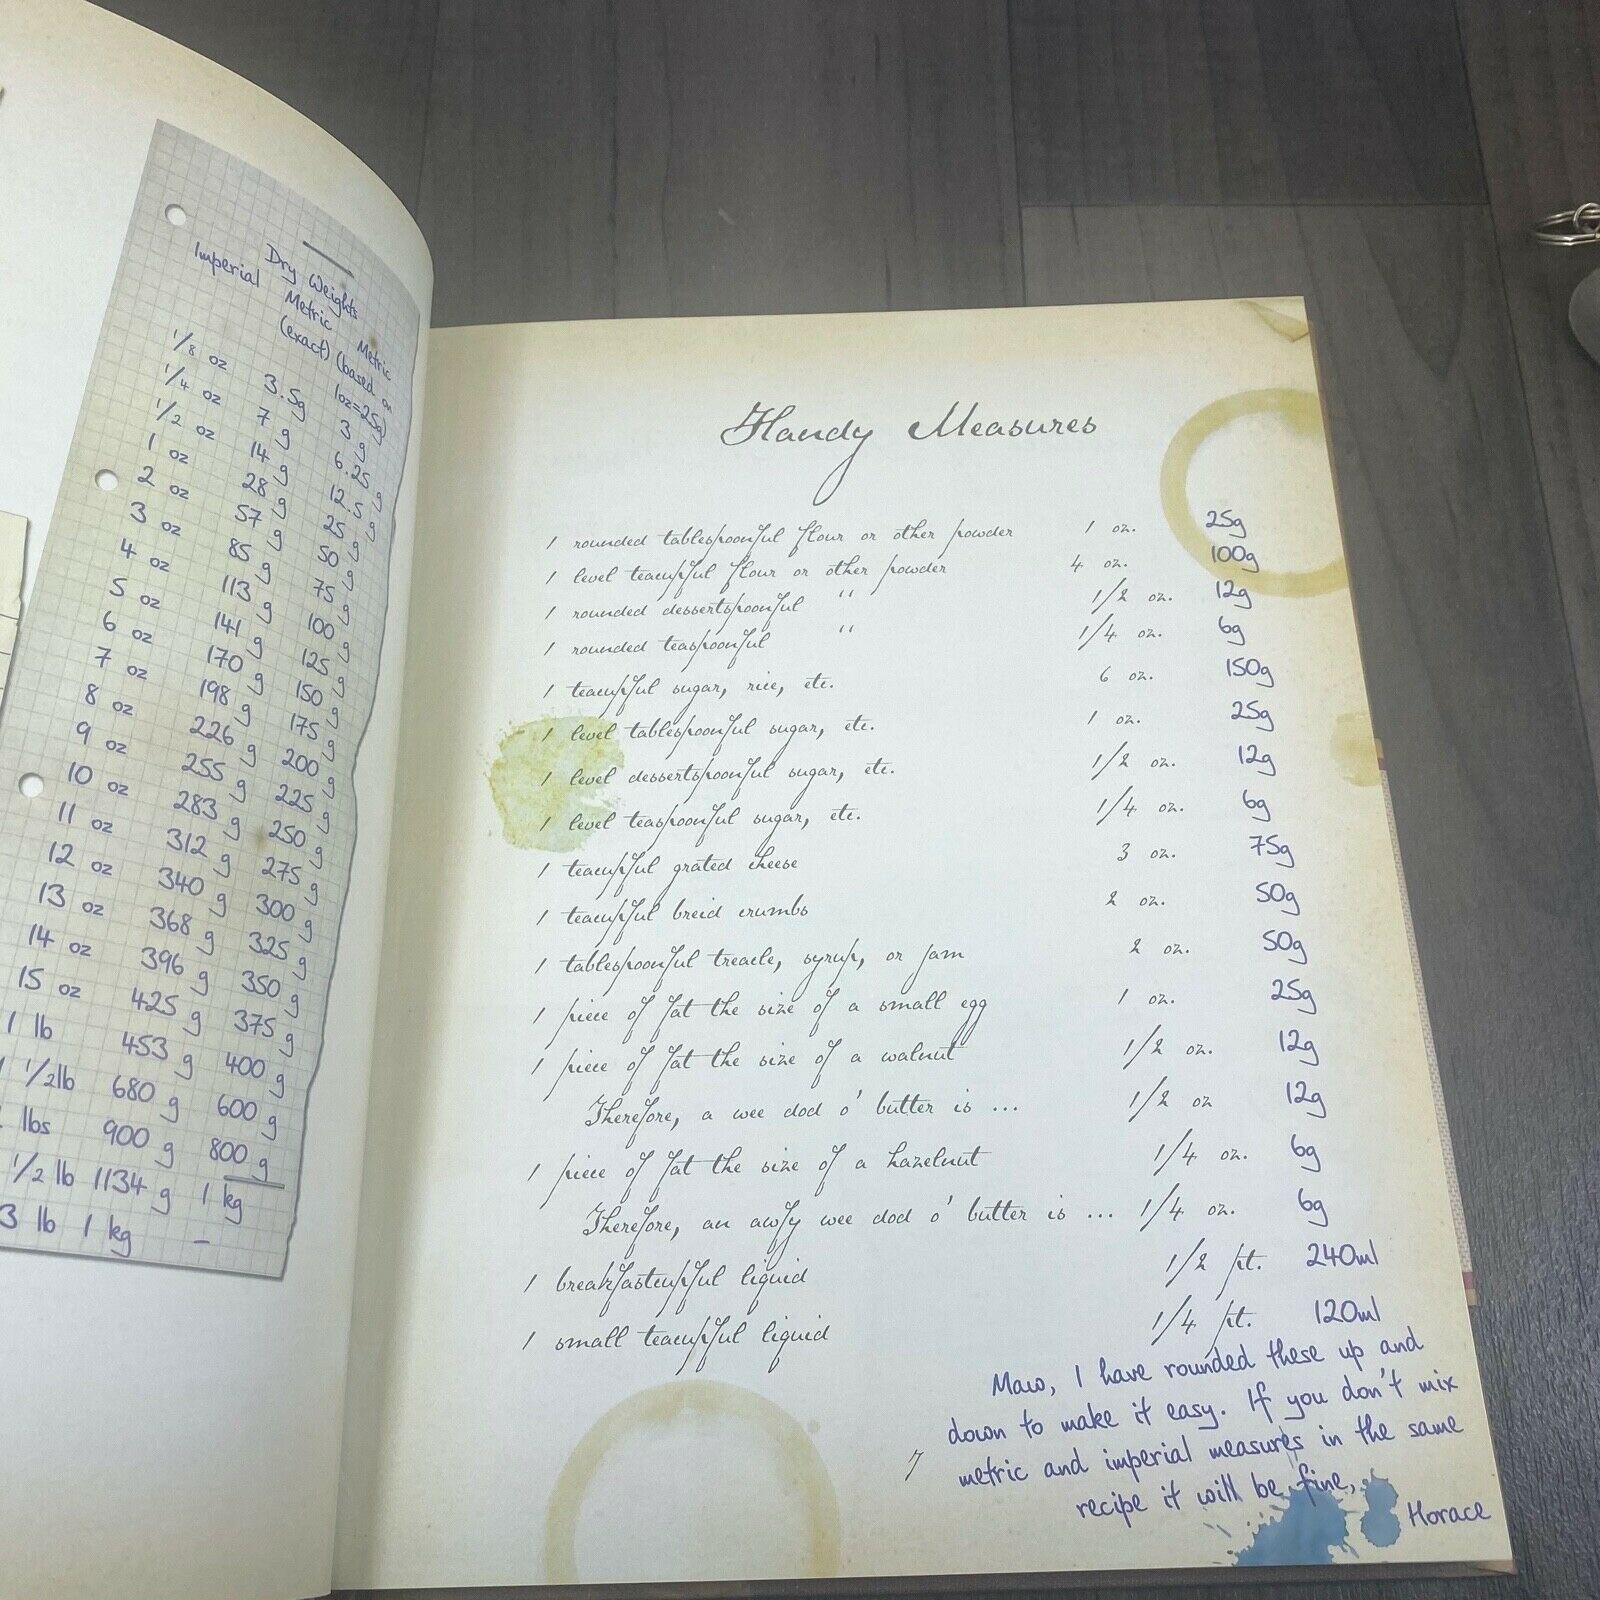 Dry Weights
Imperial Metric Metric
(exact) (based on
1oz=25g)
1/8 oz 3.5g 3 g
1/4 oz 7 g 6.25 g
1/2 oz 14 g 12.5 g
1 oz 28 g 25 g
2 oz 57 g 50 g
3 oz 85 g 75 g
4 oz 113 g 100 g
5 oz 141 g 125 g
6 oz 170 g 150 g
7 oz 198 g 175 g
8 oz 226 g 200 g
9 oz 255 g 225 g
10 oz 283 g 250 g
11 oz 312 g 275 g
12 oz 340 g 300 g
13 oz 368 g 325 g
14 oz 396 g 350 g
15 oz 425 g 375 g
1 lb 453 g 400 g
1/2lb 680 g 600 g
lbs 900 g 800 g
1/2 lb 1134 g 1 kg
3 lb 1 kg –
Handy Measures
1 rounded tablespoonful flour or other powder 1 oz. 25g
1 level teacupful flour or other powder 4 oz. 100g
1 rounded dessertspoonful " 1/2 oz. 12g
1 rounded teaspoonful " 1/4 oz. 6g
1 teacupful sugar, rice, etc. 6 oz. 150g
1 level tablespoonful sugar, etc. 1 oz. 25g
1 level dessertspoonful sugar, etc. 1/2 oz. 12g
1 level teaspoonful sugar, etc. 1/4 oz. 6g
1 teacupful grated cheese 3 oz. 75g
1 teacupful breid crumbs 2 oz. 50g
1 tablespoonful treacle, syrup, or jam 2 oz. 50g
1 piece of fat the size of a small egg 1 oz. 25g
1 piece of fat the size of a walnut 1/2 oz. 12g
Therefore, a wee dod o' butter is ... 1/2 oz 12g
1 piece of fat the size of a hazelnut 1/4 oz. 6g
Therefore, an awfy wee dod o' butter is ... 1/4 oz. 6g
1 breakfastcupful liquid 1/2 pt. 240ml
1 small teacupful liquid 1/4 pt. 120ml
Maw, I have rounded these up and
down to make it easy. If you don't mix
metric and imperial measures in the same
recipe it will be fine,
Horace
7